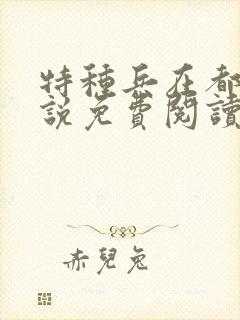 特種兵在都
說免費閱讀
赤兒兔